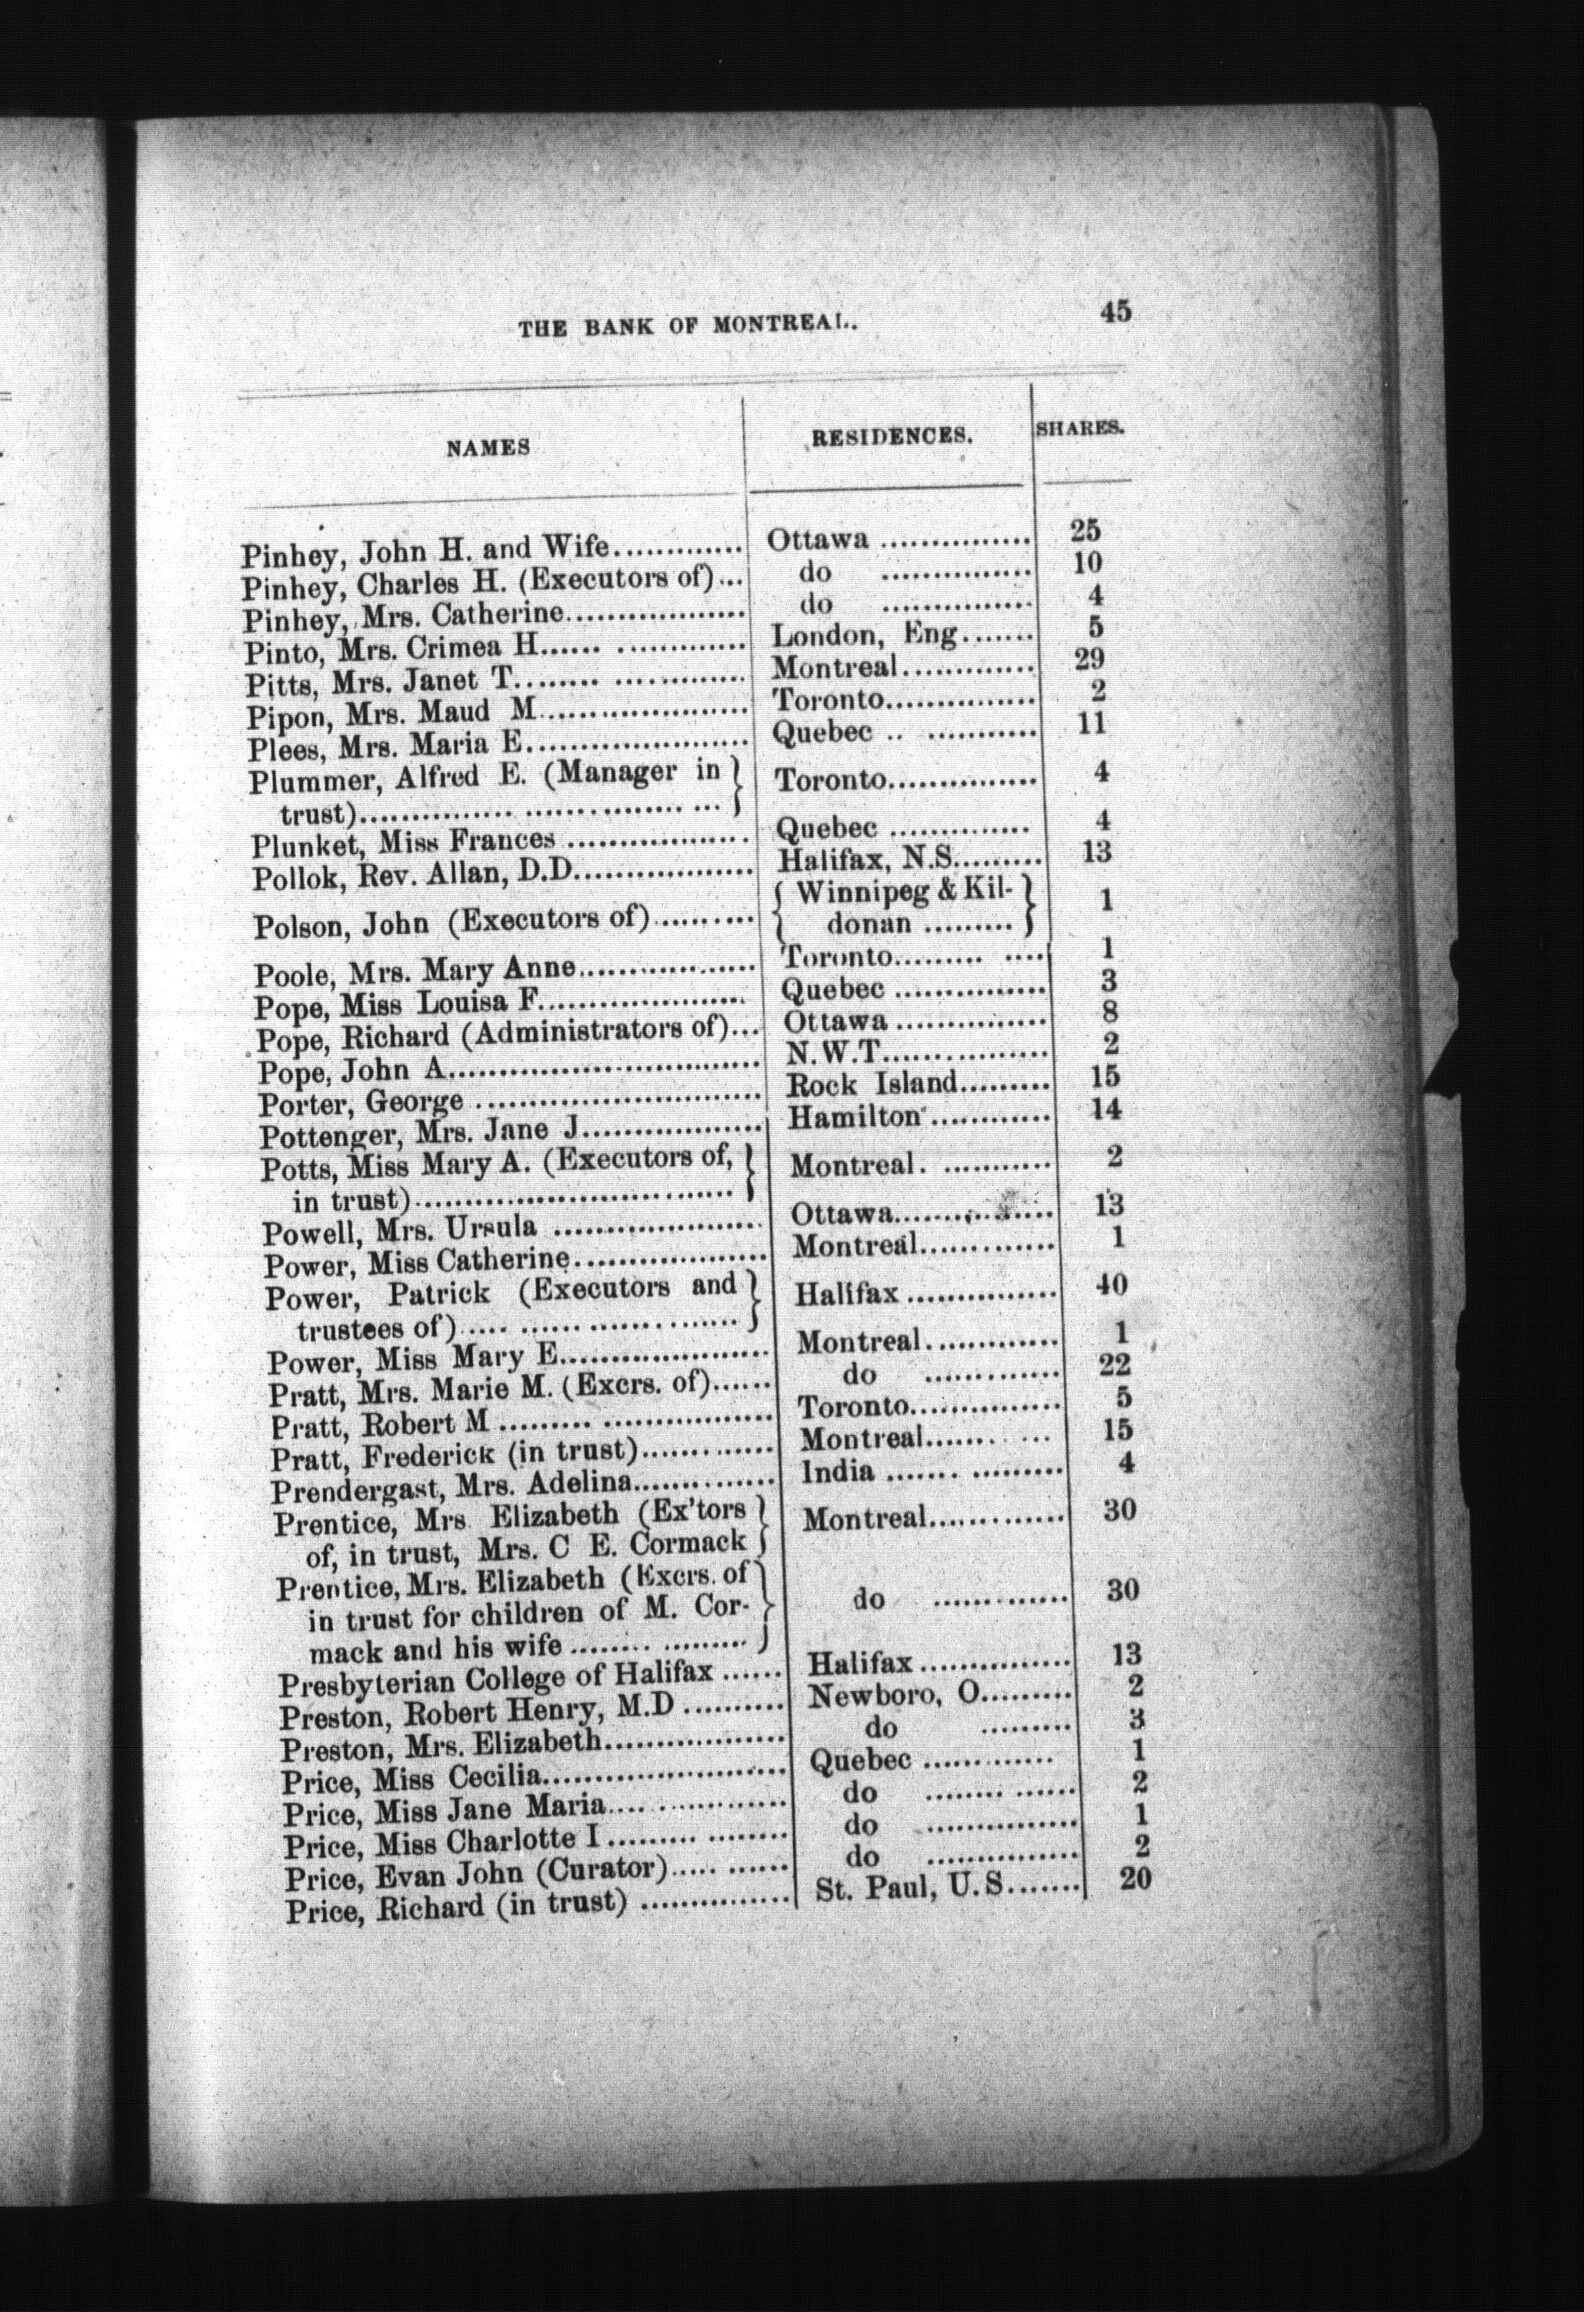 THE BANK OF MONTREAL. 45
NAMES RESIDENCES. SHARES.
Pinhey, John H. and Wife............. Ottawa ............... 25
Pinhey, Charles H. (Executors of)... do .............. 10
Pinhey, Mrs. Catherine.................. do .............. 4
Pinto, Mrs. Crimea H...... ............. London, Eng....... 5
Pitts, Mrs. Janet T........ ............. Montreal............. 29
Pipon, Mrs. Maud M.................... Toronto.............. 2
Plees, Mrs. Maria E..................... Quebec .. ........... 11
Plummer, Alfred E. (Manager in
trust)............... .................. ... Toronto.............. 4
Plunket, Miss Frances .................. Quebec .............. 4
Pollok, Rev. Allan, D.D................. Halifax, N.S......... 13
Polson, John (Executors of).......... Winnipeg & Kil-
donan ......... 1
Poole, Mrs. Mary Anne................. Toronto......... .... 1
Pope, Miss Louisa F..................... Quebec ............... 3
Pope, Richard (Administrators of)... Ottawa ............... 8
Pope, John A.............................. N.W.T................ 2
Porter, George ............................ Rock Island......... 15
Pottenger, Mrs. Jane J.................. Hamilton ............ 14
Potts, Miss Mary A. (Executors of,
in trust)................................ Montreal. ........... 2
Powell, Mrs. Ursula ..................... Ottawa................ 13
Power, Miss Catherine................... Montreal............. 1
Power, Patrick (Executors and
trustees of)..... ...... .............. Halifax ............... 40
Power, Miss Mary E..................... Montreal............. 1
Pratt, Mrs. Marie M. (Excrs. of)...... do ............. 22
Pratt, Robert M ......... ................. Toronto............... 5
Pratt, Frederick (in trust)............. Montreal....... ... 15
Prendergast, Mrs. Adelina.............. India ....... ......... 4
Prentice, Mrs. Elizabeth (Ex'tors
of, in trust, Mrs. C E. Cormack Montreal............. 30
Prentice, Mrs. Elizabeth (Excrs. of
in trust for children of M. Cor-
mack and his wife ........ ......... do ............. 30
Presbyterian College of Halifax ...... Halifax ............... 13
Preston, Robert Henry, M.D .......... Newboro, O......... 2
Preston, Mrs. Elizabeth.................. do ......... 3
Price, Miss Cecilia........................ Quebec ............. 1
Price, Miss Jane Maria.... ............. do ........ ...... 2
Price, Miss Charlotte I ......... ........ do ............... 1
Price, Evan John (Curator)..... ...... do ............... 2
Price, Richard (in trust) ............... St. Paul, U.S....... 20